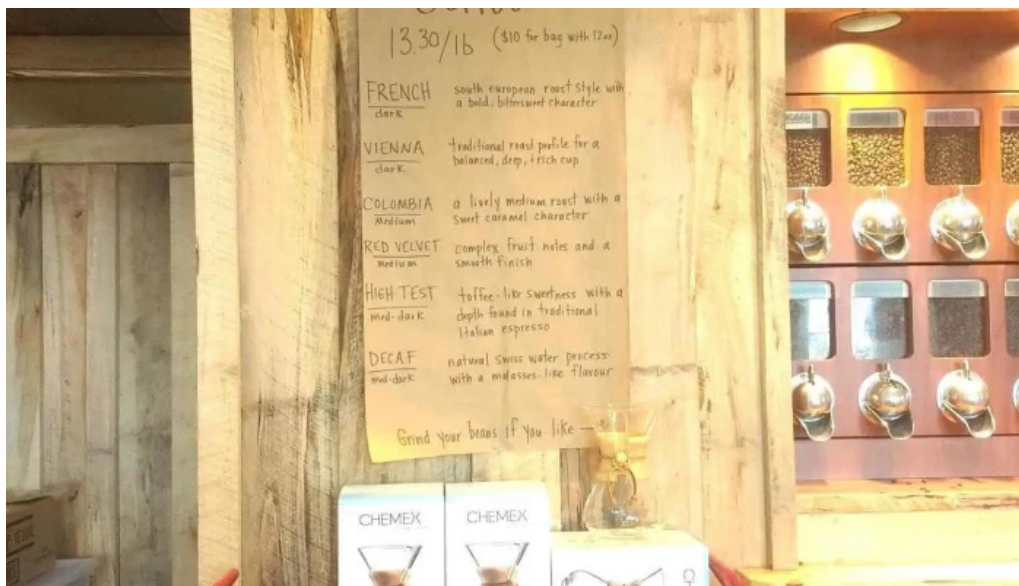 Coffee
13.30/lb ($10 for bag with 12oz)
FRENCH
dark
south european roast style with
a bold, bittersweet character
VIENNA
dark
traditional roast profile for a
balanced, deep, & rich cup
COLOMBIA
Medium
a lively medium roast with a
sweet caramel character
RED VELVET
Medium
complex fruit notes and a
smooth finish
HIGH TEST
med-dark
toffee-like sweetness with a
depth found in traditional
Italian espresso
DECAF
med-dark
natural swiss water process
with a molasses-like flavour
Grind your beans if you like →
CHEMEX
CHEMEX